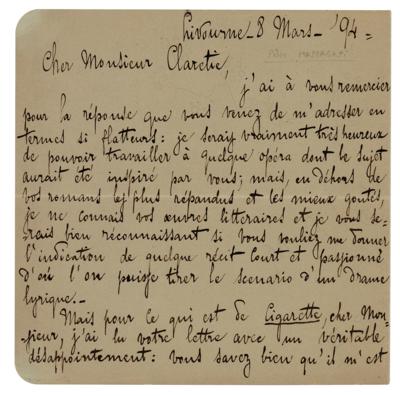 Livourne_8 Mars_'94_
Cher Monsieur Claretie,
j'ai à vous remercier
pour la réponse que vous venez de m'adresser en
termes si flatteurs: je serais vraiment très heureux
de pouvoir travailler à quelque opéra dont le sujet
aurait été inspiré par vous; mais, en déhors de
vos romans les plus répandus et les mieux goutés,
je ne connais vos œuvres litteraires et je vous se-
rais bien réconnaissant si vous vouliez me donner
l'indication de quelque récit court et passionné
d'où l'on puisse tirer le scenario d'un drame
lyrique._
Mais pour ce qui est de Cigarette, cher Mon-
sieur, j'ai lu votre lettre avec un véritable
désappointement: vous savez bien qu'il m'est